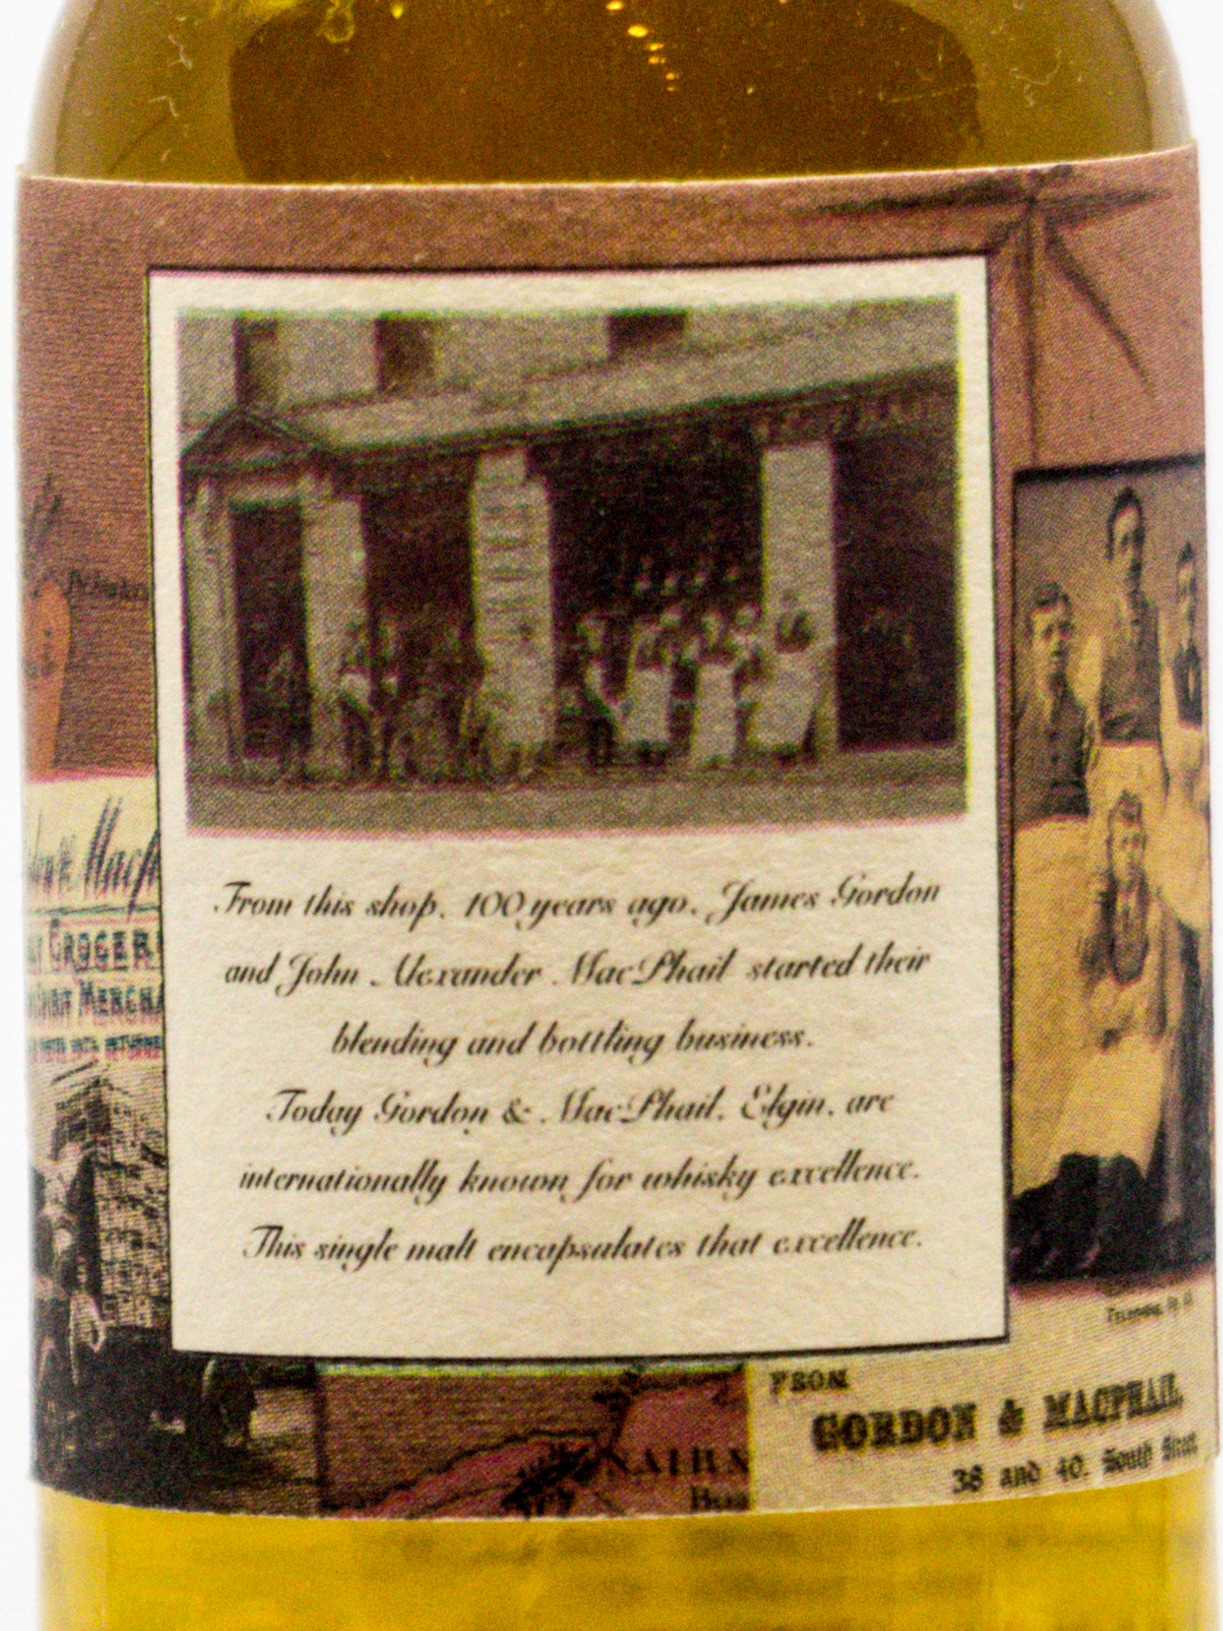 From this shop, 100 years ago, James Gordon
and John Alexander MacPhail started their
blending and bottling business.
Today Gordon & MacPhail, Elgin, are
internationally known for whisky excellence.
This single malt encapsulates that excellence.
GROCER
SPIRIT MERCHA
FROM
GORDON & MACPHAIL
38 AND 40, South Street
NAIRN